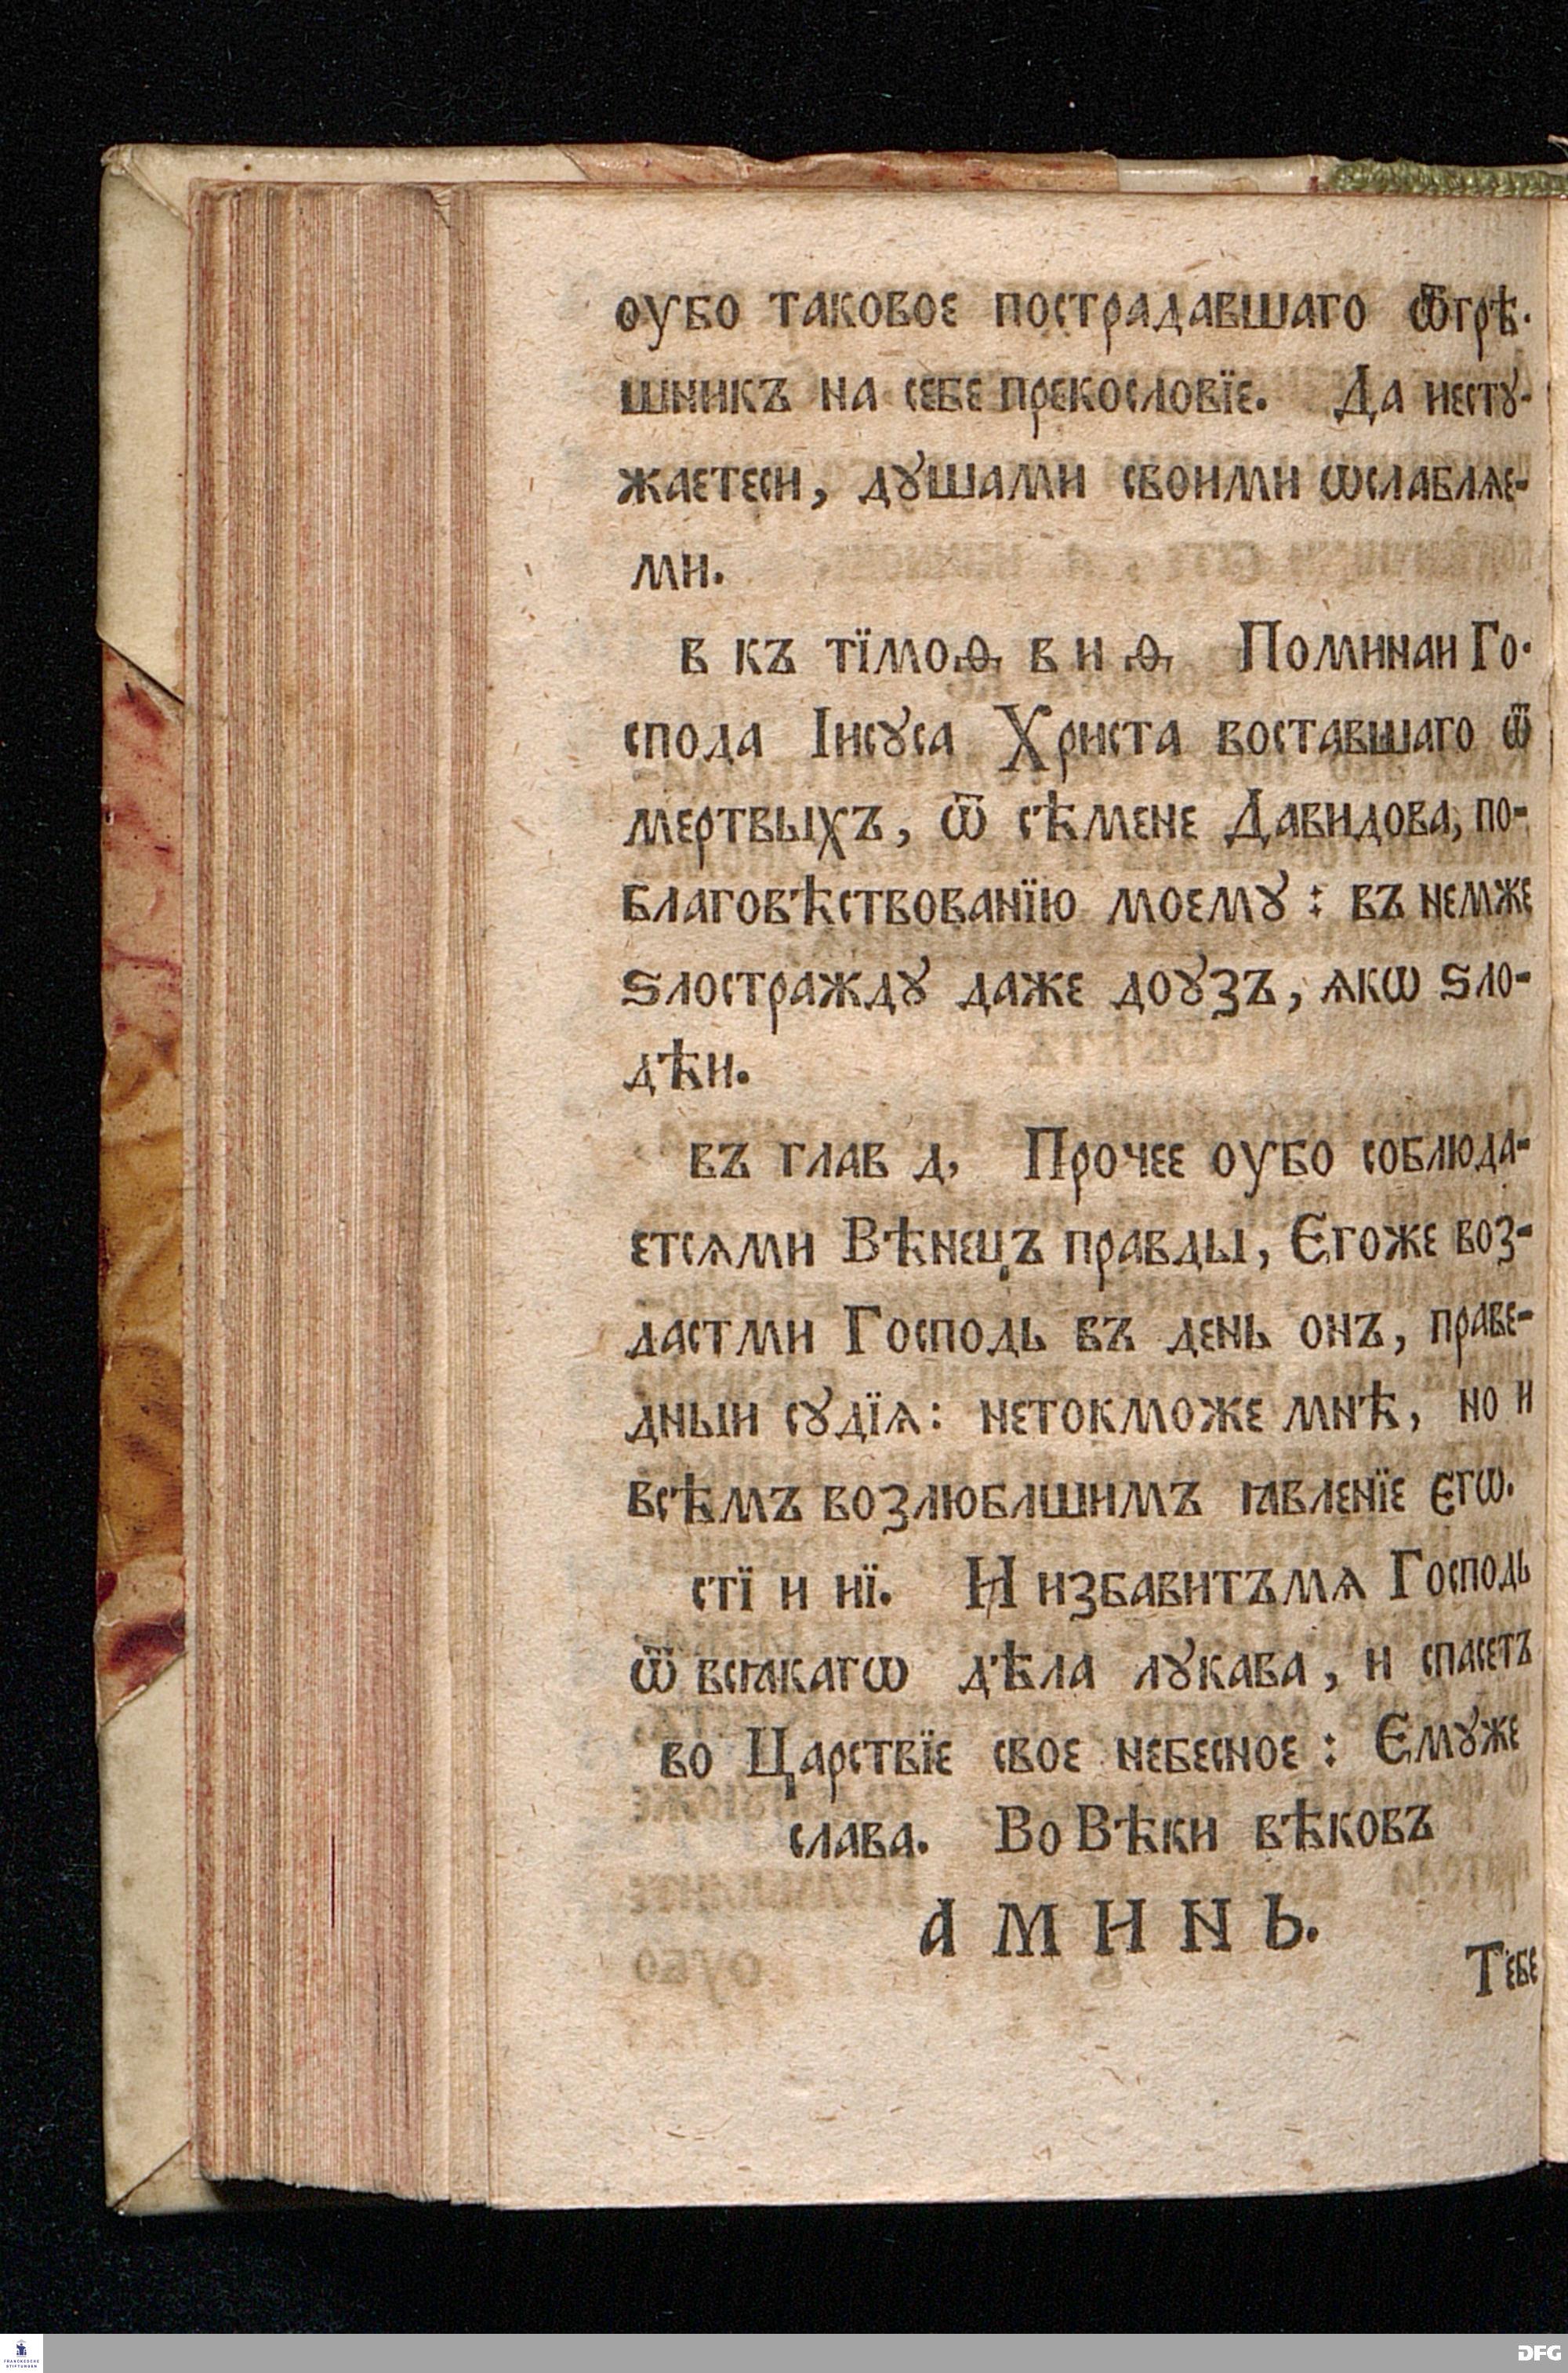 оубо таковое пострадавшаго ѿгрѣ-
шникъ на себе прекословїе. Да нестꙋ-
жаетеси, дꙋшами своими ѡслаблѧе-
ми.
в къ тїмоѳ, в и ѳ, Поминаи Го-
спода Іисꙋса Христа воставшаго ѿ
мертвыхъ, ѿ сѣмене Давидова, по-
благовѣствованїю моемꙋ : въ немже
ѕлостраждꙋ даже доꙋзъ, ѧкѡ ѕло-
дѣи.
въ глав д, Прочее оубо соблюда-
етсѧми Вѣнецъ правды, Єгоже воз-
дастми Господь въ день онъ, праве-
дныи сꙋдїѧ: нетокможе мнѣ, но и
всѣмъ возлюблшимъ ꙗвленїе єгѡ.
стї и нї. И избавитъмѧ Господь
ѿ всꙗкагѡ дѣла лꙋкава, и спасетъ
во Царствїе свое небесное : Ємꙋже
слава. Во Вѣки вѣковъ
АМИНЬ.
Тебе
FRANCKESCHE STIFTUNGEN
DFG